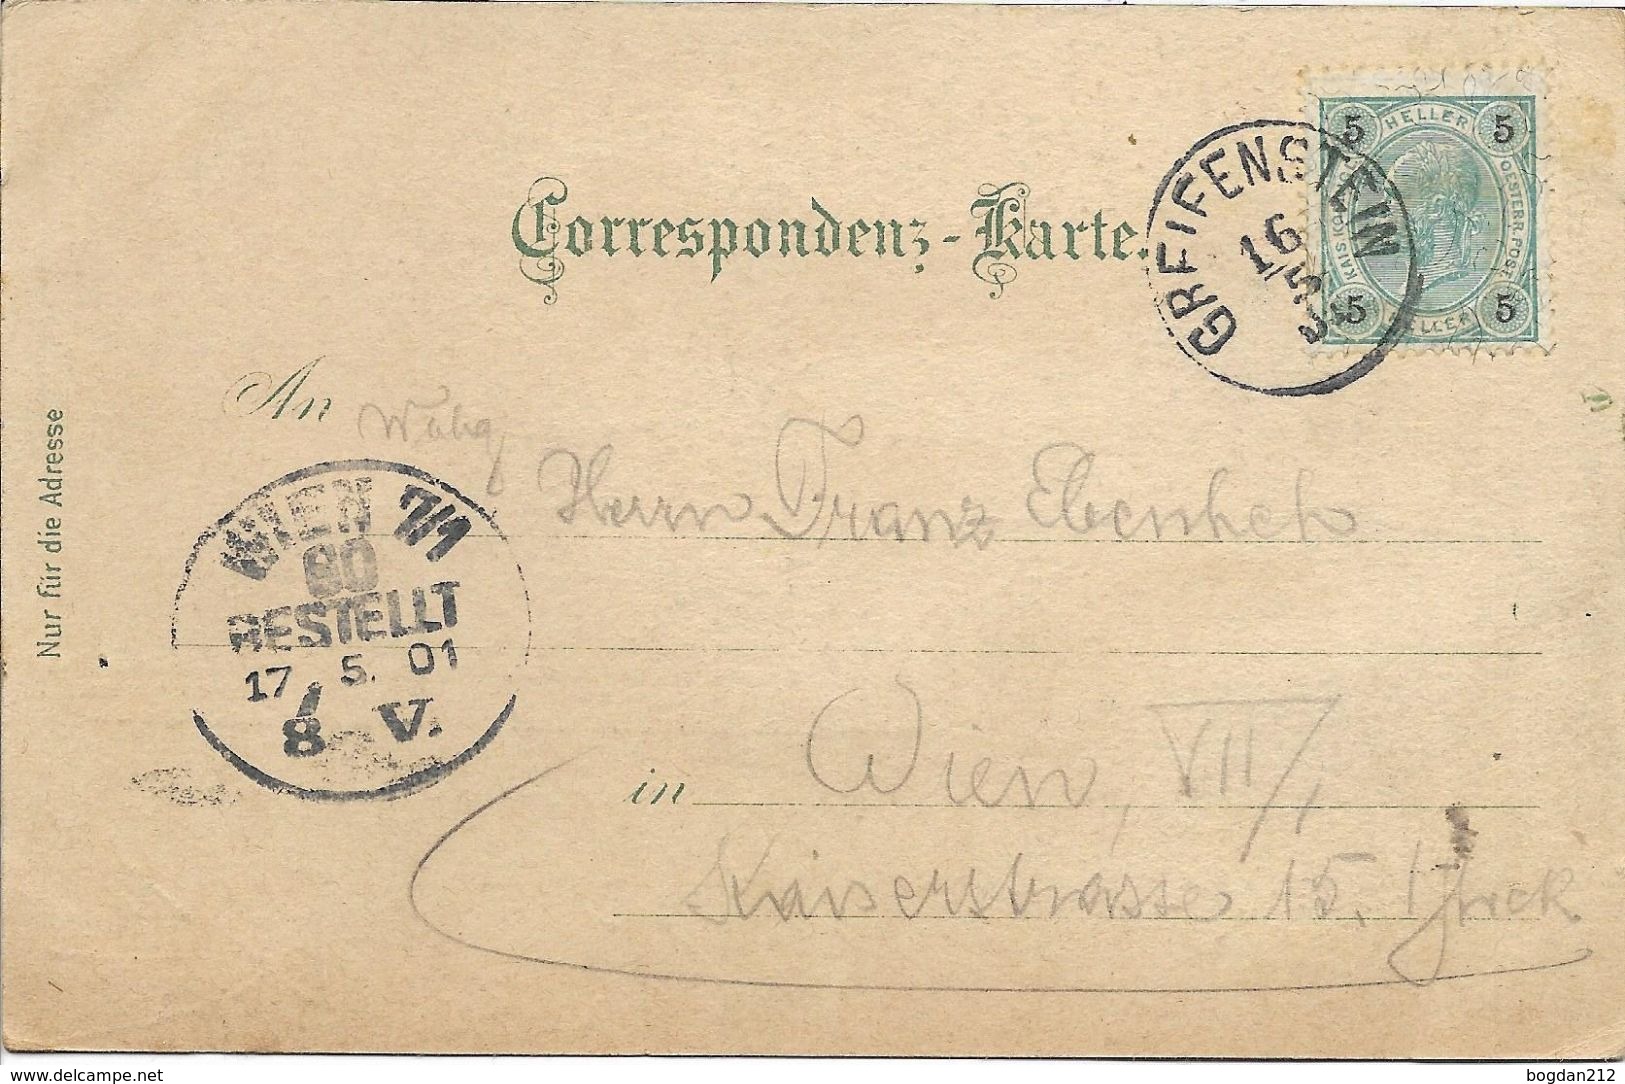 Correspondenz-Karte.
5 HELLER 5
KAIS. KÖN. OESTERR. POST
5 HELLER 5
GREIFENSTEIN
16
5
An
Herrn Franz
WIEN 7/1
60
BESTELLT
17. 5. 01
8 V.
in Wien, VII/1
Kaiserstrasse 15, 1 Stock
Nur für die Adresse
www.delcampe.net
bogdan212